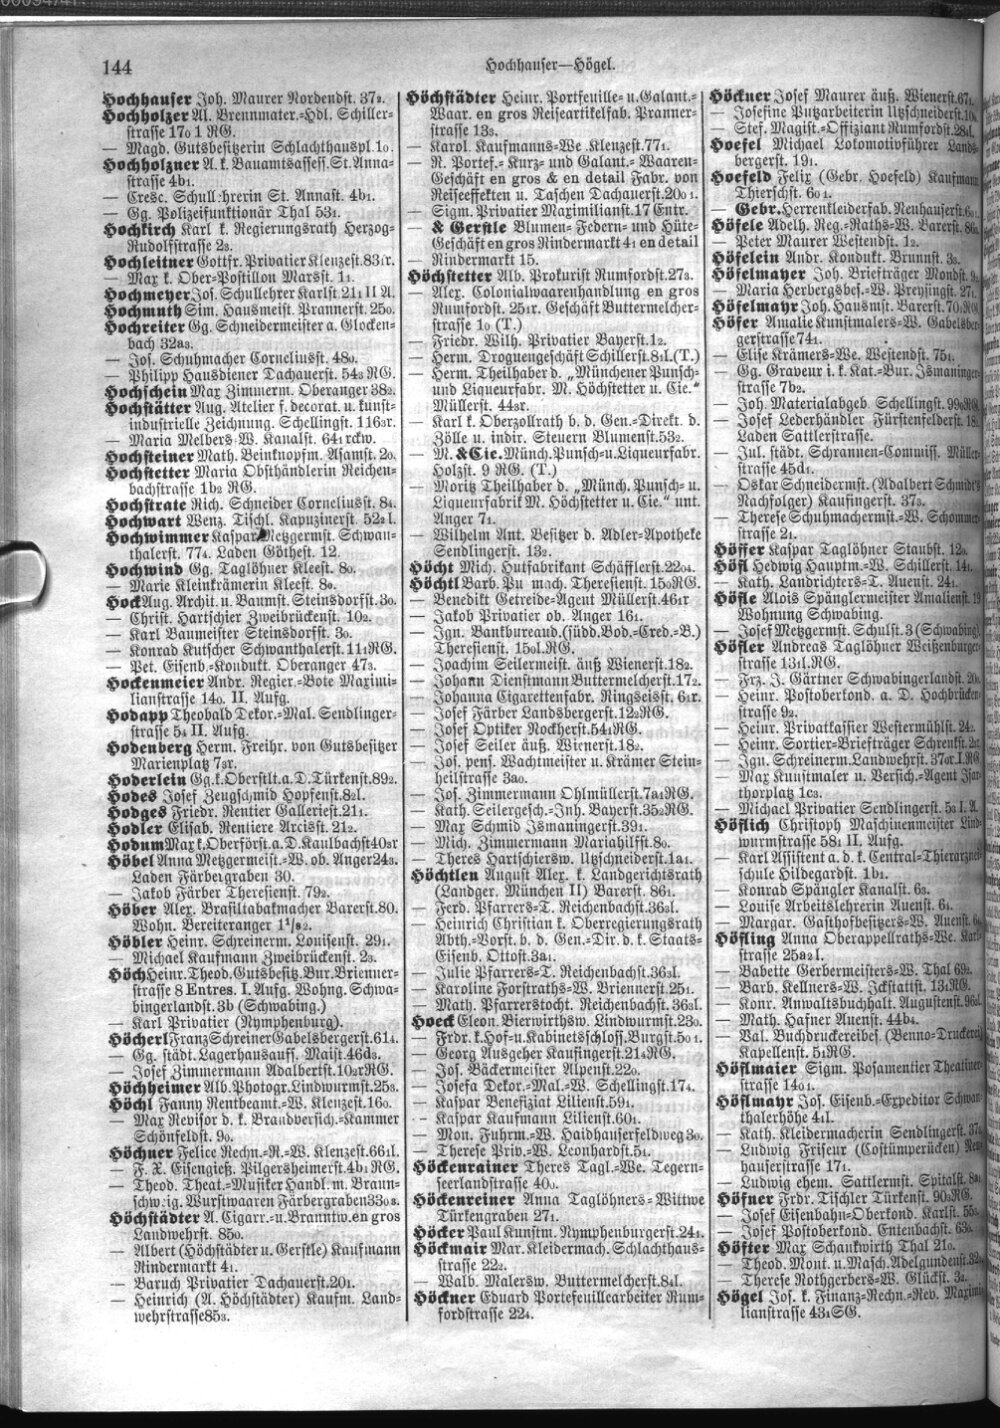 144
Hochhauser—Högel.
Hochhauser Joh. Maurer Nordendst. 372.
Hochholzer Al. Brennmater.-Hdl. Schiller-
strasse 170 1 RG.
— Magd. Gutsbesitzerin Schlachthauspl. 10.
Hochholzner A. k. Bauamtsassess. St. Anna-
strasse 4b1.
— Cresc. Schull hrerin St. Annast. 4b1.
— Gg. Polizeifunktionär Thal 531.
Hochkirch Karl k. Regierungsrath Herzog-
Rudolfstrasse 23.
Hochleitner Gottfr. Privatier Klenzest. 831r.
— Max k. Ober-Postillon Marsst. 11.
Hochmeyer Jos. Schullehrer Karlst. 211 II A.
Hochmuth Sim. Hausmeist. Prannerst. 250.
Hochreiter Gg. Schneidermeister a. Glocken-
bach 32a3.
— Jos. Schuhmacher Corneliusst. 480.
— Philipp Hausdiener Dachauerst. 543 RG.
Hochschein Max Zimmerm. Oberanger 382.
Hochstätter Aug. Atelier f. decorat. u. kunst-
industrielle Zeichnung. Schellingst. 1163r.
— Maria Melbers-W. Kanalst. 641 rckw.
Hochsteiner Math. Beinknopfm. Asamst. 20.
Hochstetter Maria Obsthändlerin Reichen-
bachstrasse 1b2 RG.
Hochstrate Rich. Schneider Corneliusst. 84.
Hochwart Wenz. Tischl. Kapuzinerst. 522 l.
Hochwimmer Kaspar Metzgermst. Schwan-
thalerst. 774. Laden Göthest. 12.
Hochwind Gg. Taglöhner Kleest. 80.
— Marie Kleinkrämerin Kleest. 80.
Hock Aug. Archit. u. Baumst. Steinsdorfst. 30.
— Christ. Hartschier Zweibrückenst. 102.
— Karl Baumeister Steinsdorfst. 30.
— Konrad Kutscher Schwanthalerst. 111RG.
— Pet. Eisenb.-Kondukt. Oberanger 473.
Hockenmeier Andr. Regier.-Bote Maximi-
lianstrasse 140. II. Aufg.
Hodapp Theobald Dekor.-Mal. Sendlinger-
strasse 51 II. Aufg.
Hodenberg Herm. Freihr. von Gutsbesitzer
Marienplatz 73r.
Hoderlein Gg. k. Oberstlt. a. D. Türkenst. 892.
Hodes Josef Zeugschmid Hopfenst. 82l.
Hodges Friedr. Rentier Galleriest. 211.
Hodler Elisab. Rentiere Arcisst. 212.
Hodum Max k. Oberförst. a. D. Kaulbachst 403r
Höbel Anna Metzgermeist.-W. ob. Anger 243.
Laden Färbergraben 30.
— Jakob Färber Theresienst. 792.
Höber Alex. Brasiltabakmacher Barerst. 80.
Wohn. Bereiteranger 1¹/82.
Höbler Heinr. Schreinerm. Louisenst. 291.
— Michael Kaufmann Zweibrückenst. 23.
Höch Heinr. Theod. Gutsbesitz. Bur. Brienner-
strasse 8 Entres. I. Aufg. Wohng. Schwa-
bingerlandst. 3b (Schwabing.)
— Karl Privatier (Nymphenburg).
Höcherl Franz Schreiner Gabelsbergerst. 614.
— Gg. städt. Lagerhausauff. Maist. 46d3.
— Josef Zimmermann Adalbertst. 102rRG.
Höchheimer Alb. Photogr. Lindwurmst. 253.
Höchl Fanny Rentbeamt.-W. Klenzest. 160.
— Max Revisor d. k. Brandversich.-Kammer
Schönfeldst. 90.
Höchner Felice Rechn.-R.-W. Klenzest. 661l.
— F. X. Eisengieß. Pilgersheimerst. 4b1 RG.
— Theod. Theat.-Musiker Handl. m. Braun-
schw.ig. Wurstwaaren Färbergraben 330 3.
Höchstädter A. Cigarr.- u. Branntw. en gros
Landwehrst. 850.
— Albert (Höchstädter u. Gerstle) Kaufmann
Rindermarkt 41.
— Baruch Privatier Dachauerst. 201.
— Heinrich (A. Höchstädter) Kaufm. Land-
wehrstrasse 853.
Höchstädter Heinr. Portfeuille- u. Galant.-
Waar. en gros Reiseartikelfab. Pranner-
strasse 133.
— Karol. Kaufmanns-We. Klenzest. 771.
— R. Portef.- Kurz- und Galant.- Waaren-
Geschäft en gros & en detail Fabr. von
Reiseeffekten u. Taschen Dachauerst. 200 1.
— Sigm. Privatier Maximilianst. 17 Entr.
— & Gerstle Blumen- Federn- und Hüte-
Geschäft en gros Rindermarkt 41 en detail
Rindermarkt 15.
Höchstetter Alb. Prokurist Rumfordst. 273.
— Alex. Colonialwaarenhandlung en gros
Rumfordst. 251r. Geschäft Buttermelcher-
strasse 10 (T.)
— Friedr. Wilh. Privatier Bayerst. 12.
— Herm. Droguengeschäft Schillerst. 81l. (T.)
— Herm. Theilhaber d. „Münchener Punsch-
und Liqueurfabr. M. Höchstetter u. Cie."
Müllerst. 443r.
— Karl k. Oberzollrath b. d. Gen.-Direkt. d.
Zölle u. indir. Steuern Blumenst. 532.
— M. & Cie. Münch. Punsch- u. Liqueurfabr.
Holzst. 9 RG. (T.)
— Moritz Theilhaber d. „Münch. Punsch- u.
Liqueurfabrik M. Höchstetter u. Cie." unt.
Anger 71.
— Wilhelm Ant. Besitzer d. Adler-Apotheke
Sendlingerst. 132.
Höcht Mich. Hutfabrikant Schäfflerst. 2204.
Höchtl Barb. Pu mach. Theresienst. 150RG.
— Benedikt Getreide-Agent Müllerst. 461r
— Jakob Privatier ob. Anger 161.
— Ign. Bankbureaud. (südd. Bod.-Cred.-B.)
Theresienst. 150l. RG.
— Joachim Seilermeist. äuß Wienerst. 182.
— Johann Dienstmann Buttermelcherst. 172.
— Johanna Cigarettenfabr. Ringseisst. 61r.
— Josef Färber Landsbergerst. 122RG.
— Josef Optiker Rockherst. 541RG.
— Josef Seiler äuß. Wienerst. 182.
— Jos. pens. Wachtmeister u. Krämer Stein-
heilstrasse 3a0.
— Jos. Zimmermann Ohlmüllerst. 7a1RG.
Kath. Seilergesch.-Inh. Bayerst. 352RG.
— Max Schmid Ismaningerst. 391.
— Mich. Zimmermann Mariahilfst. 80.
— Theres Hartschiersw. Utzschneiderst. 1a1.
Höchtlen August Alex. k. Landgerichtsrath
(Landger. München II) Barerst. 861.
— Ferd. Pfarrers-T. Reichenbachst. 362l.
— Heinrich Christian k. Oberregierungsrath
Abth.-Vorst. b. d. Gen.-Dir. d. k. Staats-
Eisenb. Ottost. 3a1.
— Julie Pfarrers-T. Reichenbachst. 363l.
— Karoline Forstraths-W. Briennerst. 251.
— Math. Pfarrerstocht. Reichenbachst. 362l.
Hoeck Eleon. Bierwirthsw. Lindwurmst. 230.
— Frdr. k. Hof- u. Kabinetsschloss. Burgst. 50 1.
— Georg Ausgeher Kaufingerst. 214RG.
— Jos. Bäckermeister Alpenst. 220.
— Josefa Dekor.-Mal.-W. Schellingst. 174.
— Kaspar Benefiziat Lilienst. 591.
— Kaspar Kaufmann Lilienst. 601.
— Mon. Fuhrm.-W. Haidhauserfeldweg 30.
— Therese Priv.-W. Leonhardst. 51.
Höckenrainer Theres Tagl.-We. Tegern-
seerlandstrasse 400.
Höckenreiner Anna Taglöhners-Wittwe
Türkengraben 271.
Höcker Paul Kunstm. Nymphenburgerst. 241.
Höckmair Mar. Kleidermach. Schlachthaus-
strasse 222.
— Walb. Malersw. Buttermelcherst. 84l.
Höckner Eduard Portefeuillearbeiter Rum-
fordstrasse 224.
Höckner Josef Maurer äuß. Wienerst. 671.
— Josefine Putzarbeiterin Utzschneiderst. 10
— Stef. Magist.-Offiziant Rumfordst. 284l.
Hoefel Michael Lokomotivführer Lands-
bergerst. 191.
Hoefeld Felix (Gebr. Hoefeld) Kaufmann
Thierschst. 60 1.
— Gebr. Herrenkleiderfab. Neuhauserst. 60
Höfele Adelh. Reg.-Raths-W. Barerst. 86
— Peter Maurer Westendst. 12.
Höfelein Andr. Kondukt. Brunnst. 33.
Höfelmayer Joh. Briefträger Mondst. 9
— Maria Herbergsbes.-W. Preysingst. 271.
Höfelmayr Joh. Hausmst. Barerst. 70RG
Höfer Amalie Kunstmalers-W. Gabelsber-
gerstrasse 741.
— Elise Krämers-We. Westendst. 751.
— Gg. Graveur i. k. Kat.-Bur. Ismaninger-
strasse 7b2.
— Joh. Materialabgeb. Schellingst. 990RG
— Josef Lederhändler Fürstenfelderst. 18
Laden Sattlerstrasse.
— Jul. städt. Schrannen-Commiss. Müller-
strasse 45d1.
— Oskar Schneidermst. (Adalbert Schmidt's
Nachfolger) Kaufingerst. 373.
— Therese Schuhmachermst.-W. Schommer-
strasse 21.
Höffer Kaspar Taglöhner Staubst. 120.
Höfl Hedwig Hauptm.-W. Schillerst. 141.
— Kath. Landrichters-T. Auenst. 241.
Höfle Alois Spänglermeister Amalienst. 19
Wohnung Schwabing.
— Josef Metzgermst. Schulst. 3 (Schwabing)
Höfler Andreas Taglöhner Weißenburger-
strasse 131l. RG.
— Frz. J. Gärtner Schwabingerlandst. 20
— Heinr. Postoberkond. a. D. Hochbrücken-
strasse 92.
— Heinr. Privatkassier Westermühlst. 242.
— Heinr. Sortier-Briefträger Schrenkst. 2
— Jgn. Schreinerm. Landwehrst. 370r I. RG
— Max Kunstmaler u. Versich.-Agent Isar-
thorplatz 1c3.
— Michael Privatier Sendlingerst. 53 I. A.
Höflich Christoph Maschinenmeister Lind-
wurmstrasse 581 II. Aufg.
— Karl Assistent a. d. k. Central-Thierarznei-
schule Hildegardst. 1b1.
— Konrad Spängler Kanalst. 63.
— Louise Arbeitslehrerin Auenst. 61.
— Margar. Gasthofbesitzers-W. Auenst. 6
Höfling Anna Oberappellraths-We. Karl-
strasse 25a2 l.
— Babette Gerbermeisters-W. Thal 692.
— Barb. Kellners-W. Ickstattst. 131RG.
— Konr. Anwaltsbuchhalt. Augustenst. 96 l.
— Math. Hafner Auenst. 44b4.
— Val. Buchdruckereibes. (Benno-Druckerei)
Kapellenst. 51RG.
Höflmaier Sigm. Posamentier Theatiner-
strasse 140 1.
Höflmayr Jos. Eisenb.-Expeditor Schwan-
thalerhöhe 41l.
— Kath. Kleidermacherin Sendlingerst. 37
— Ludwig Friseur (Costümperücken) Neu-
hauserstrasse 171.
— Ludwig ehem. Sattlermst. Spitalst. 8a1
Höfner Frdr. Tischler Türkenst. 903RG.
— Josef Eisenbahn-Oberkond. Karlst. 55
— Josef Postoberkond. Entenbachst. 63
Höfter Max Schankwirth Thal 210.
— Theod. Mont. u. Masch. Adelgundenst. 32
— Therese Rothgerbers-W. Glückst. 32.
Högel Jos. k. Finanz-Rechn.-Rev. Maximi-
lianstrasse 431SG.